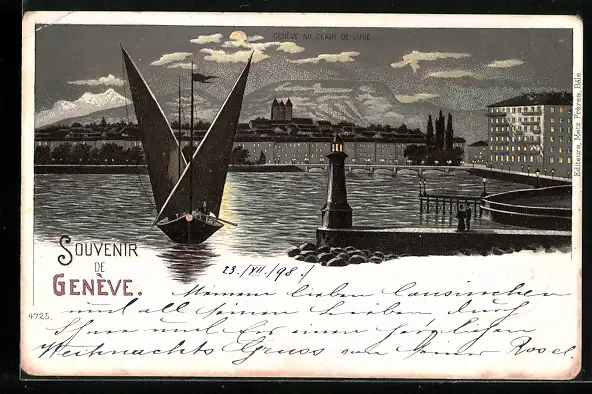 GENÈVE AU CLAIR DE LUNE.
Editeurs, Metz Frères, Bâle
SOUVENIR
DE
GENÈVE.
23./XII./98./
4725.
Meinem lieben Cousinchen
und all seinen Lieben durch
Schnee und Eis einen herzlichen
Weihnachts Gruss von Deiner Rosel